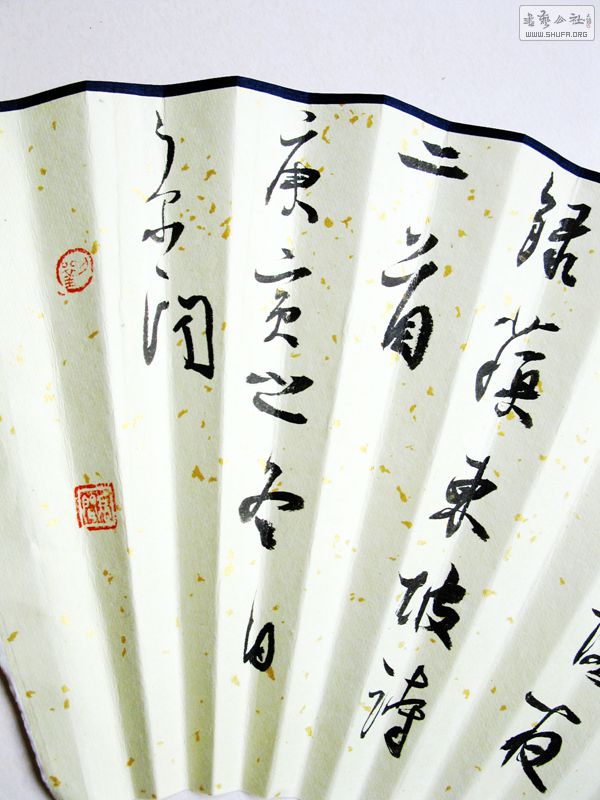 夜
録蘇東坡詩
二首
庚寅之冬日
書藝公社
WWW.SHUFA.ORG